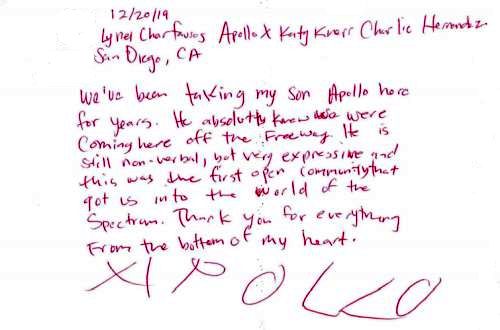 12/20/19
Apollo X Katy Knorr Charlie Hernandez
San Diego, CA
We've been taking my son Apollo here
for years. He absolutly knew we were
coming here off the Freeway. He is
still non-verbal, but very expressive and
this was the first open community that
got us into the world of the
Spectrum. Thank you for everything
From the bottom of my heart.
APOLLO